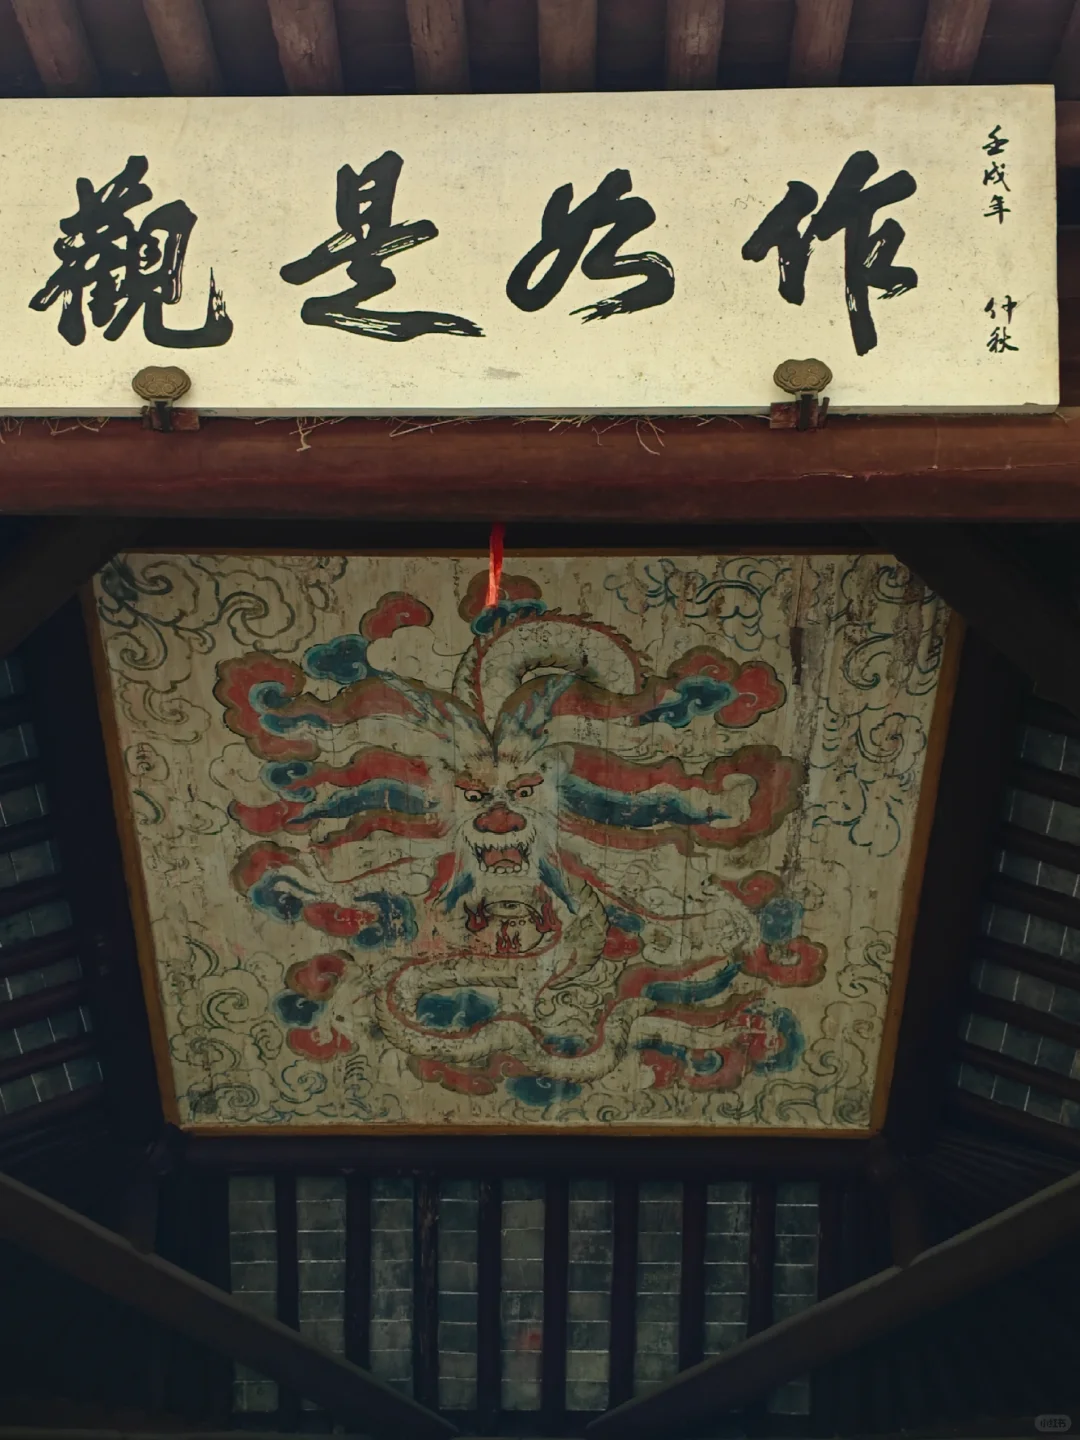 壬戌年 仲秋
作如是觀
小红书